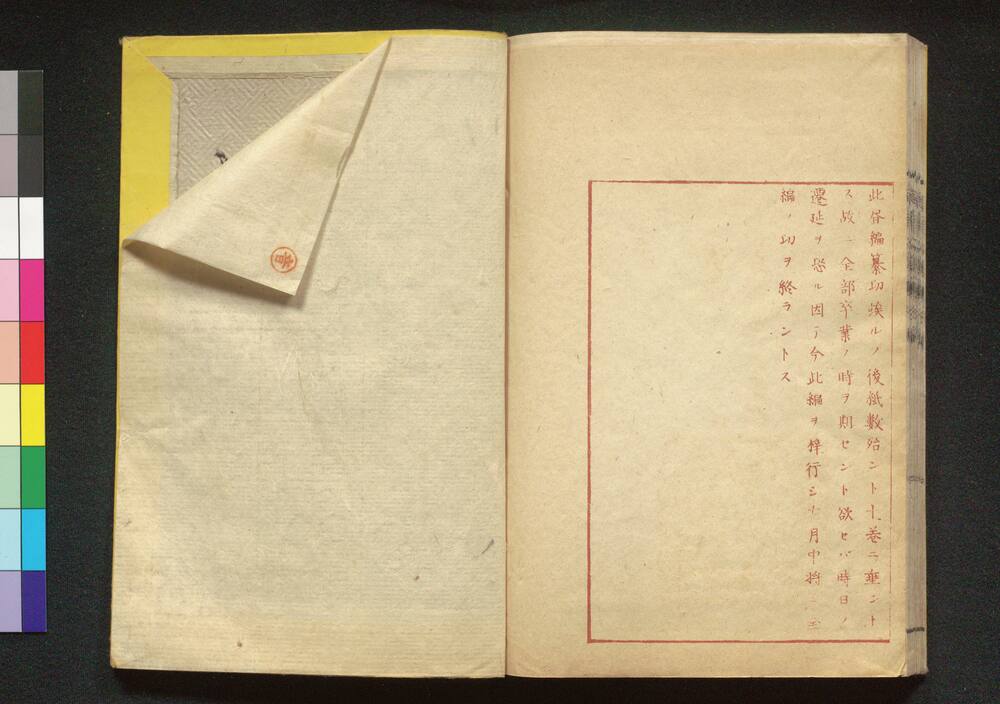 此書編纂功竣ルノ後紙数殆ント十巻ニ垂ント
ス故ニ全部卒業ノ時ヲ期セント欲セバ時日ノ
遷延ヲ恐ル因テ今此編ヲ梓行シ十月中将ニ
編ノ功ヲ終ラントス